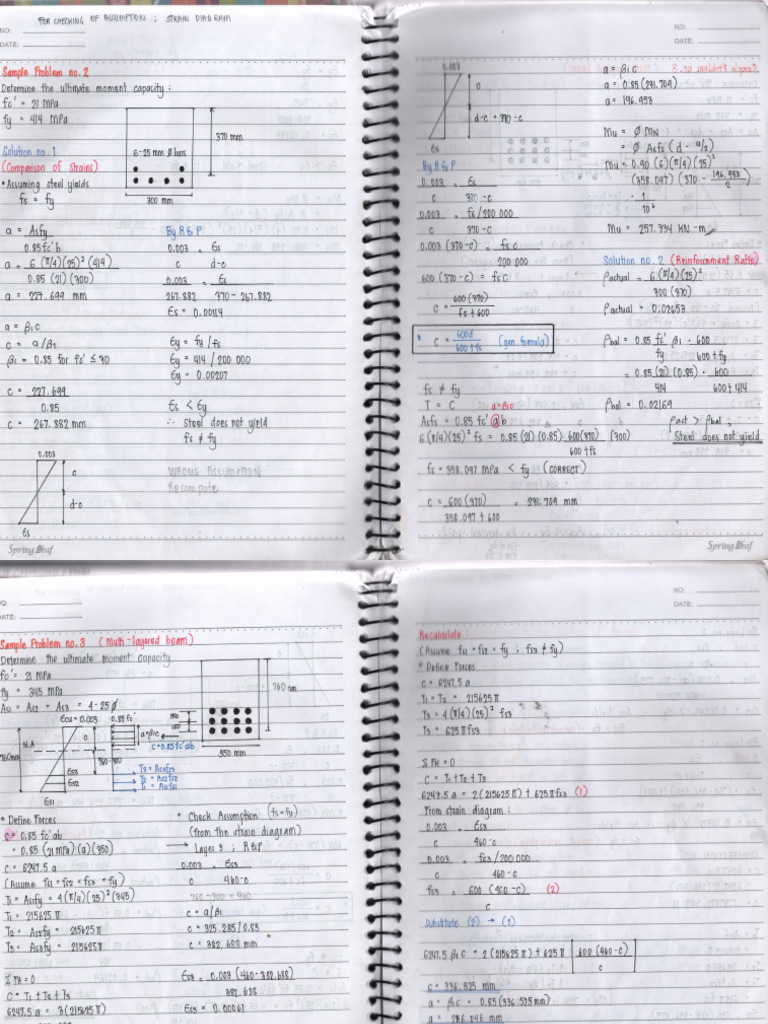 FOR CHECKING OF ASSUMPTION ; STRAIN DIAGRAM
NO:
DATE:
Sample Problem no. 2
Determine the ultimate moment capacity :
fc' = 21 MPa
fy = 414 MPa
370 mm
6-25 mm Ø bars
300 mm
Solution no. 1
(Comparison of Strains)
• Assuming steel yields
fs = fy
a = Asfy
0.85 fc' b
a = 6 (π/4)(25)² (414)
0.85 (21) (300)
a = 227.699 mm
a = β1c
c = a/β1
β1 = 0.85 for fc' ≤ 30
c = 227.699
0.85
c = 267.882 mm
By R & P
0.003 = Es
c d-c
0.003 = Es
267.882 370 - 267.882
Es = 0.00114
Ey = fy / fs
Ey = 414 / 200 000
Ey = 0.00207
Es < Ey
∴ Steel does not yield
fs ≠ fy
WRONG ASSUMPTION
Recompute
0.003
c
d-c
Es
Spring Leaf
NO:
DATE:
0.003
c
d-c = 370 - c
Es
By R & P
0.003 = Es
c 370-c
0.003 = fs/200 000
c 370-c
0.003 (370-c) = fs c
200 000
600 (370-c) = fsc
c = 600 (370)
fs + 600
c = 600d (gen. formula)
600 + fs
fs ≠ fy
T = C a = β1c
Asfs = 0.85 fc' a b
6 (π/4)(25)² fs = 0.85 (21) (0.85) 600(370) (300)
600 + fs
fs = 358.097 MPa < fy (CORRECT)
c = 600 (370) = 231.709 mm
358.097 + 600
a = β1 c
a = 0.85 (231.709)
a = 196.953
Mu = Ø MN
= Ø Asfs (d - a/2)
Mu = 0.90 (6) (π/4) (25)²
(358.097) (370 - 196.953
2
· 1
10⁶
Mu = 257.734 KN-m
Solution no. 2 (Reinforcement Ratio)
ρactual = 6 (π/4)(25)²
300 (370)
ρactual = 0.02653
ρbal = 0.85 fc' β1 · 600
fy 600 + fy
= 0.85 (21) (0.85) · 600
414 600 + 414
ρbal = 0.02169
ρact > ρbal,
Steel does not yield
Spring Leaf
DATE:
Sample Problem no. 3 (Multi-layered beam)
Determine the ultimate moment capacity
fc' = 21 MPa
fy = 345 MPa
As1 = As2 = As3 = 4-25 Ø
Ecu = 0.003
0.85 fc'
a = β1c
C = 0.85 fc' ab
N.A
c
Es3
Es2
Es1
T3 = As3fs3
T2 = As2fs2
T1 = As1fs1
760 mm
350 mm
• Define Forces
C = 0.85 fc' ab
= 0.85 (21 MPa) (a) (350)
C = 6247.5 a
(Assume fs1 = fs2 = fs3 = fy)
T1 = Asfy = 4 (π/4) (25)² (345)
T1 = 215625 π
T2 = As2fy = 215625 π
T3 = As3fy = 215625 π
Σ FH = 0
C = T1 + T2 + T3
6247.5 a = 3 (215625 π)
• Check Assumption (fs = fy)
(from the strain diagram)
→ Layer 3 ; R & P
0.003 = Es3
c 460-c
760 - 300 = 460
c = a/β1
c = 325.285/0.85
c = 382.688 mm
Es3 = 0.003 (460 - 382.688)
382.688
Es3 = 0.00061
NO:
DATE:
Recalculate :
(Assume fs1 = fs2 = fy ; fs3 ≠ fy)
• Define Forces
C = 6247.5 a
T1 = T2 = 215625 π
T3 = 4 (π/4) (25)² fs3
T3 = 625 π fs3
Σ FH = 0
C = T1 + T2 + T3
6247.5 a = 2 (215625 π) + 625 π fs3 (1)
From strain diagram :
0.003 = Es3
c 460-c
0.003 = fs3 / 200 000
c 460-c
fs3 = 600 (460-c) (2)
c
Substitute (2) → (1)
6247.5 β1 c = 2 (215625 π) + 625 π [ 600 (460-c) ]
c
c = 336.525 mm
a = β1c = 0.85 (336.525 mm)
a = 286.046 mm